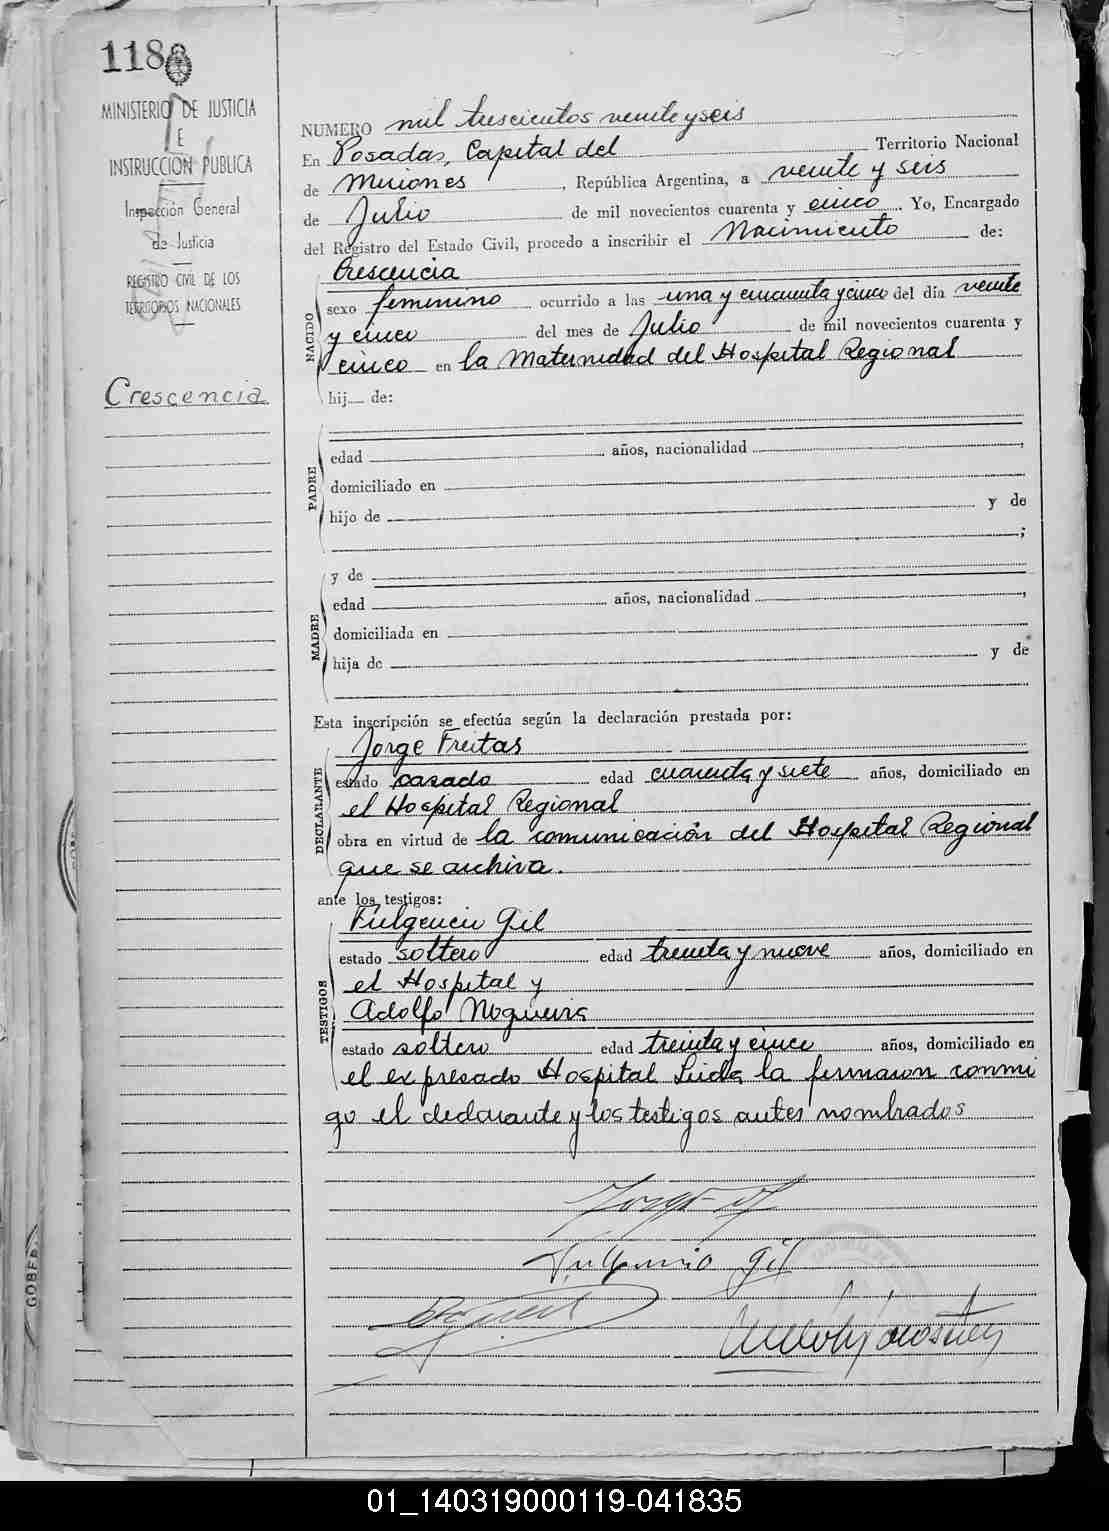 118
MINISTERIO DE JUSTICIA
E
INSTRUCCION PUBLICA
Inspección General
de Justicia
REGISTRO CIVIL DE LOS
TERRITORIOS NACIONALES
Crescencia
NUMERO mil trescientos veinte y seis
En Posadas, Capital del Territorio Nacional
de Misiones, República Argentina, a veinte y seis
de Julio de mil novecientos cuarenta y cinco. Yo, Encargado
del Registro del Estado Civil, procedo a inscribir el Nacimiento de:
NACIDO
Crescencia
sexo femenino ocurrido a las una y cincuenta y cinco del día veinte
y cinco del mes de Julio de mil novecientos cuarenta y
cinco en la Maternidad del Hospital Regional
hij de:
PADRE
edad años, nacionalidad ,
domiciliado en
hijo de y de
;
MADRE
y de
edad años, nacionalidad ,
domiciliada en
hija de y de
Esta inscripción se efectúa según la declaración prestada por:
DECLARANTE
Jorge Freitas
estado casado edad cuarenta y siete años, domiciliado en
el Hospital Regional
obra en virtud de la comunicación del Hospital Regional
que se archiva.
ante los testigos:
TESTIGOS
Fulgencio Gil
estado soltero edad treinta y nueve años, domiciliado en
el Hospital y
Adolfo Nogueira
estado soltero edad treinta y cinco años, domiciliado en
el expresado Hospital Leida la firmaron conmi
go el declarante y los testigos antes nombrados
Fulgencio Gil
GOBER
01_140319000119-041835